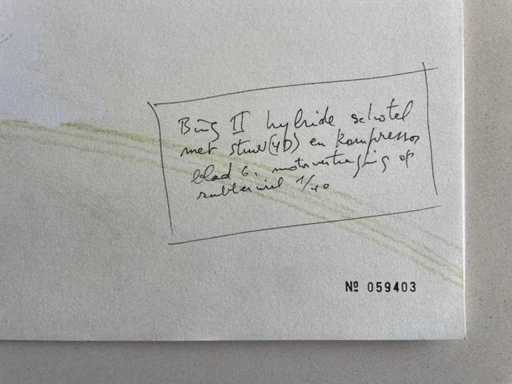 Bing II hybride schotel
met stuw(4D) en kompressor
blad 6. motorvertraging op
rubberwiel 1/40
Nº 059403